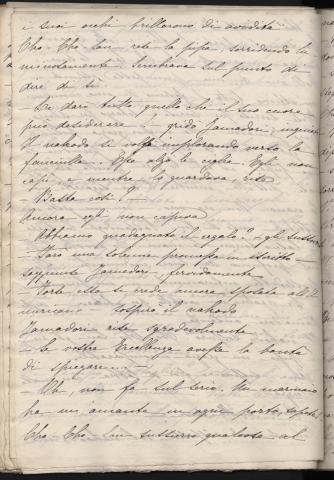 i suoi occhi brillarono di avidità
Cho-Cho-San rese la pipa, sorridendo
minutamente. Sembrava sul punto di
dire di sì
- Le darò tutto quello che il suo cuore
può desiderare! - gridò Yamadori,
Il nakodo si volse implorando verso la
fanciulla. Essa alzò le ciglia. Egli non
capì e mentre la guardava, rise
- Basta così?
Ancora egli non capiva
- Abbiamo guadagnato il regalo? - gli
- Farò una solenne promessa in iscritto -
soggiunse Yamadori, fervidamente
- Forse ella si crede ancora sposata all'
americano - sospirò il nakodo
Yamadori rise sgradevolmente
- Se vostra Eccellenza avesse la bontà
di spiegare...
- Oh, non fa sul serio. Un marinaio
ha un'amante in ogni porto, sapete
Cho-Cho-San sussurrò qualcosa al